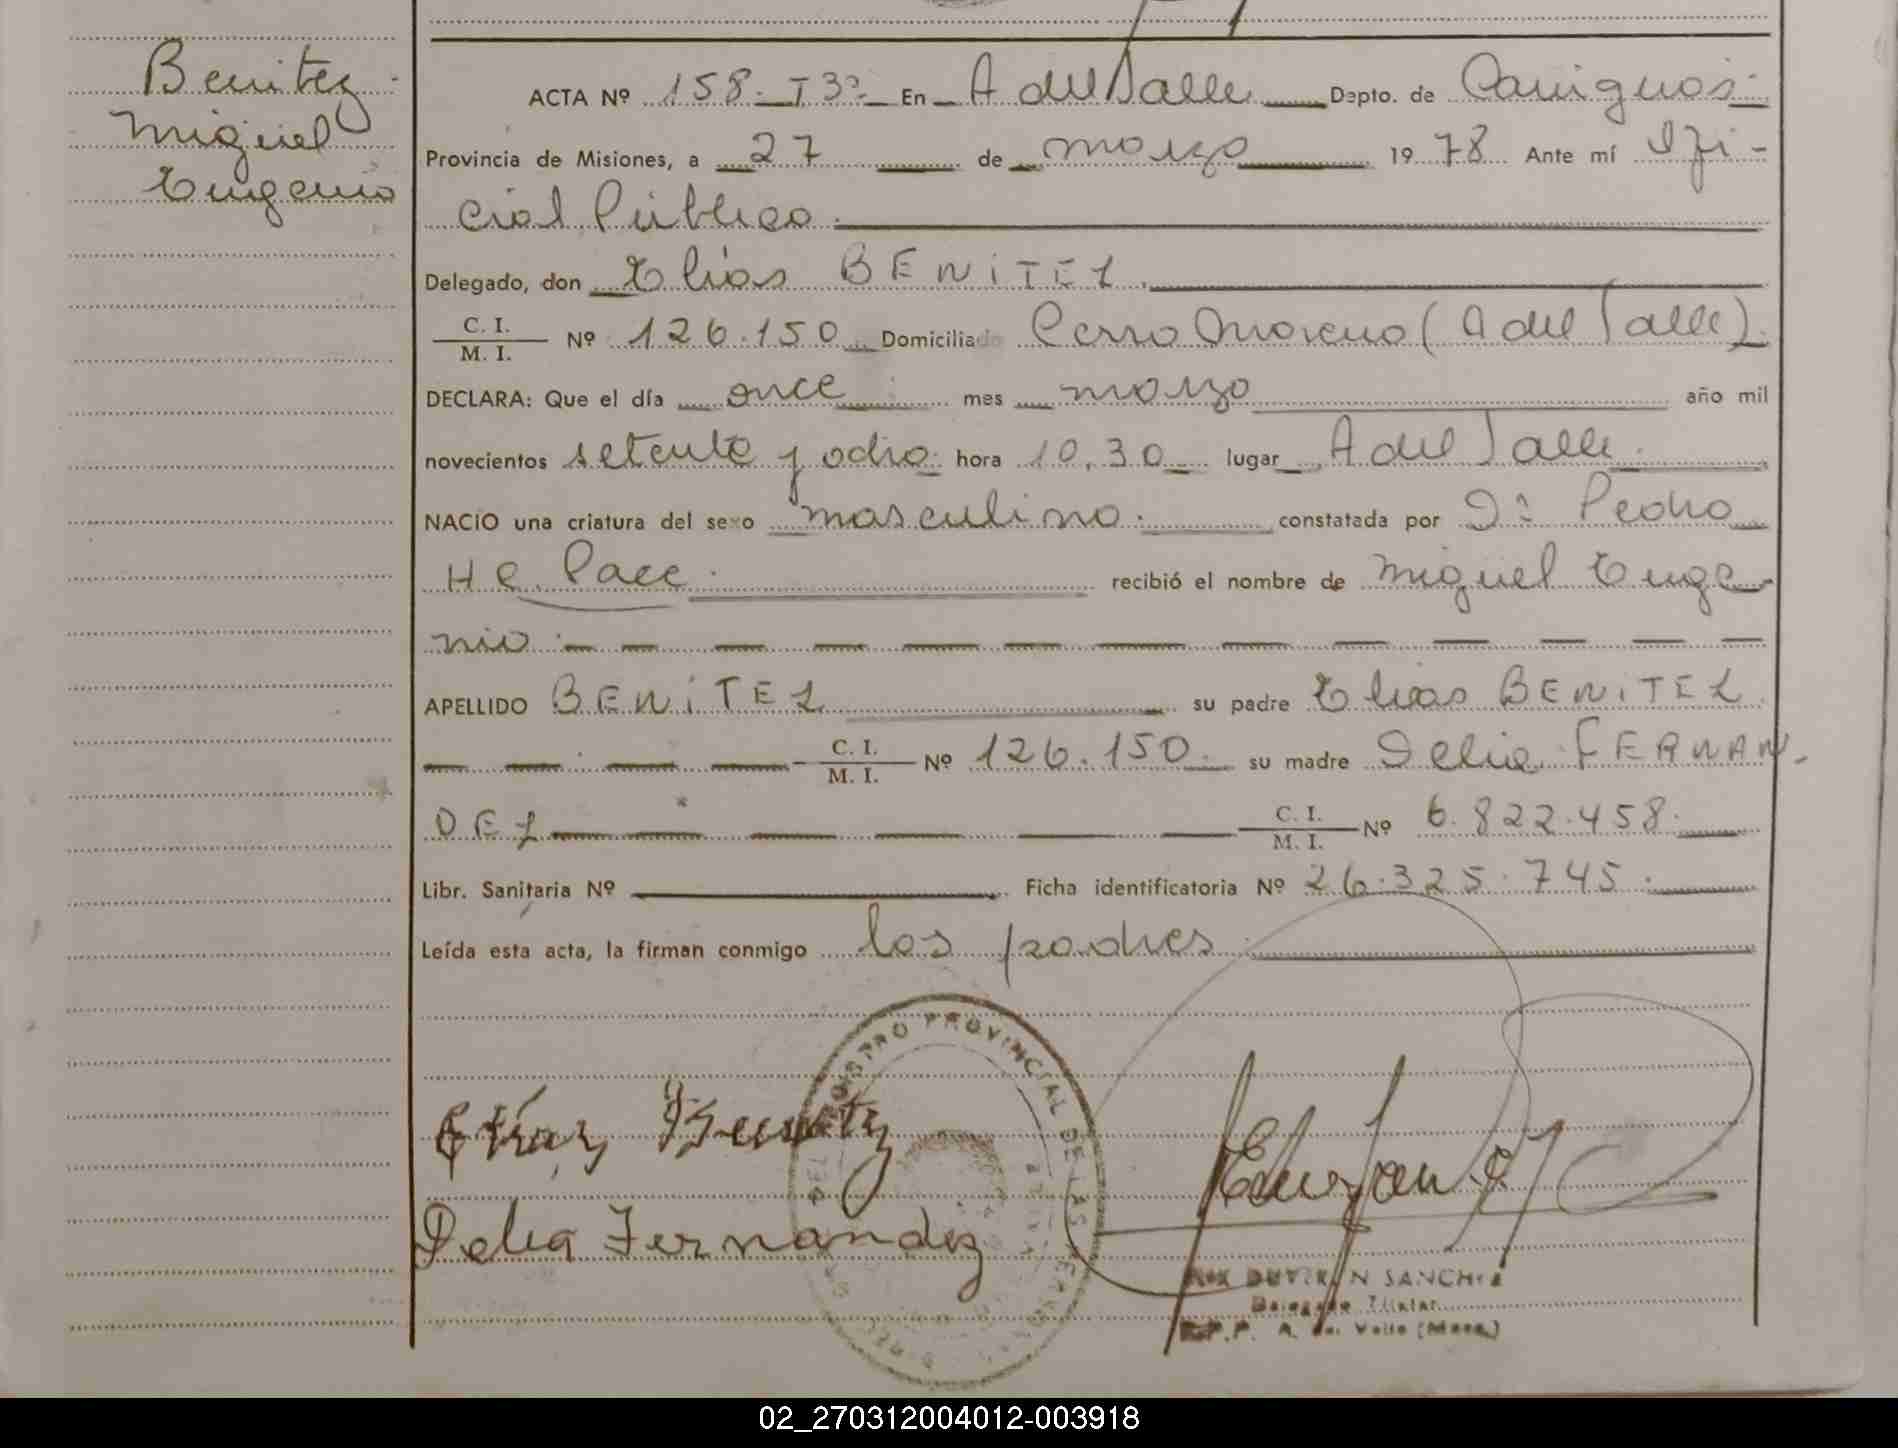 Benitez
Miguel
Eugenio
ACTA Nº 158 - T3º - En A del Valle Depto. de Cainguas
Provincia de Misiones, a 27 de marzo 1978 Ante mí Ofi-
cial Público.
Delegado, don Elias BENITEZ
C. I.
M. I.
Nº 126.150 Domiciliado Cerro Moreno (A del Valle).
DECLARA: Que el día once mes marzo año mil
novecientos setenta y ocho hora 10,30 lugar A del Valle.
NACIO una criatura del sexo masculino. constatada por Dr. Pedro
recibió el nombre de Miguel Euge-
nio.
APELLIDO BENITEZ su padre Elias BENITEZ
C. I.
M. I.
Nº 126.150. su madre Delia FERNAN-
DEZ
C. I.
M. I.
Nº 6.822.458.
Libr. Sanitaria Nº Ficha identificatoria Nº 26.325.745.
Leída esta acta, la firman conmigo los padres
REGISTRO PROVINCIAL DE LAS PERSONAS
Elías Benitez
Delia Fernandez
SANCHEZ
Delegado Titular
R.P.P. A. del Valle (Mnes.)
02_270312004012-003918